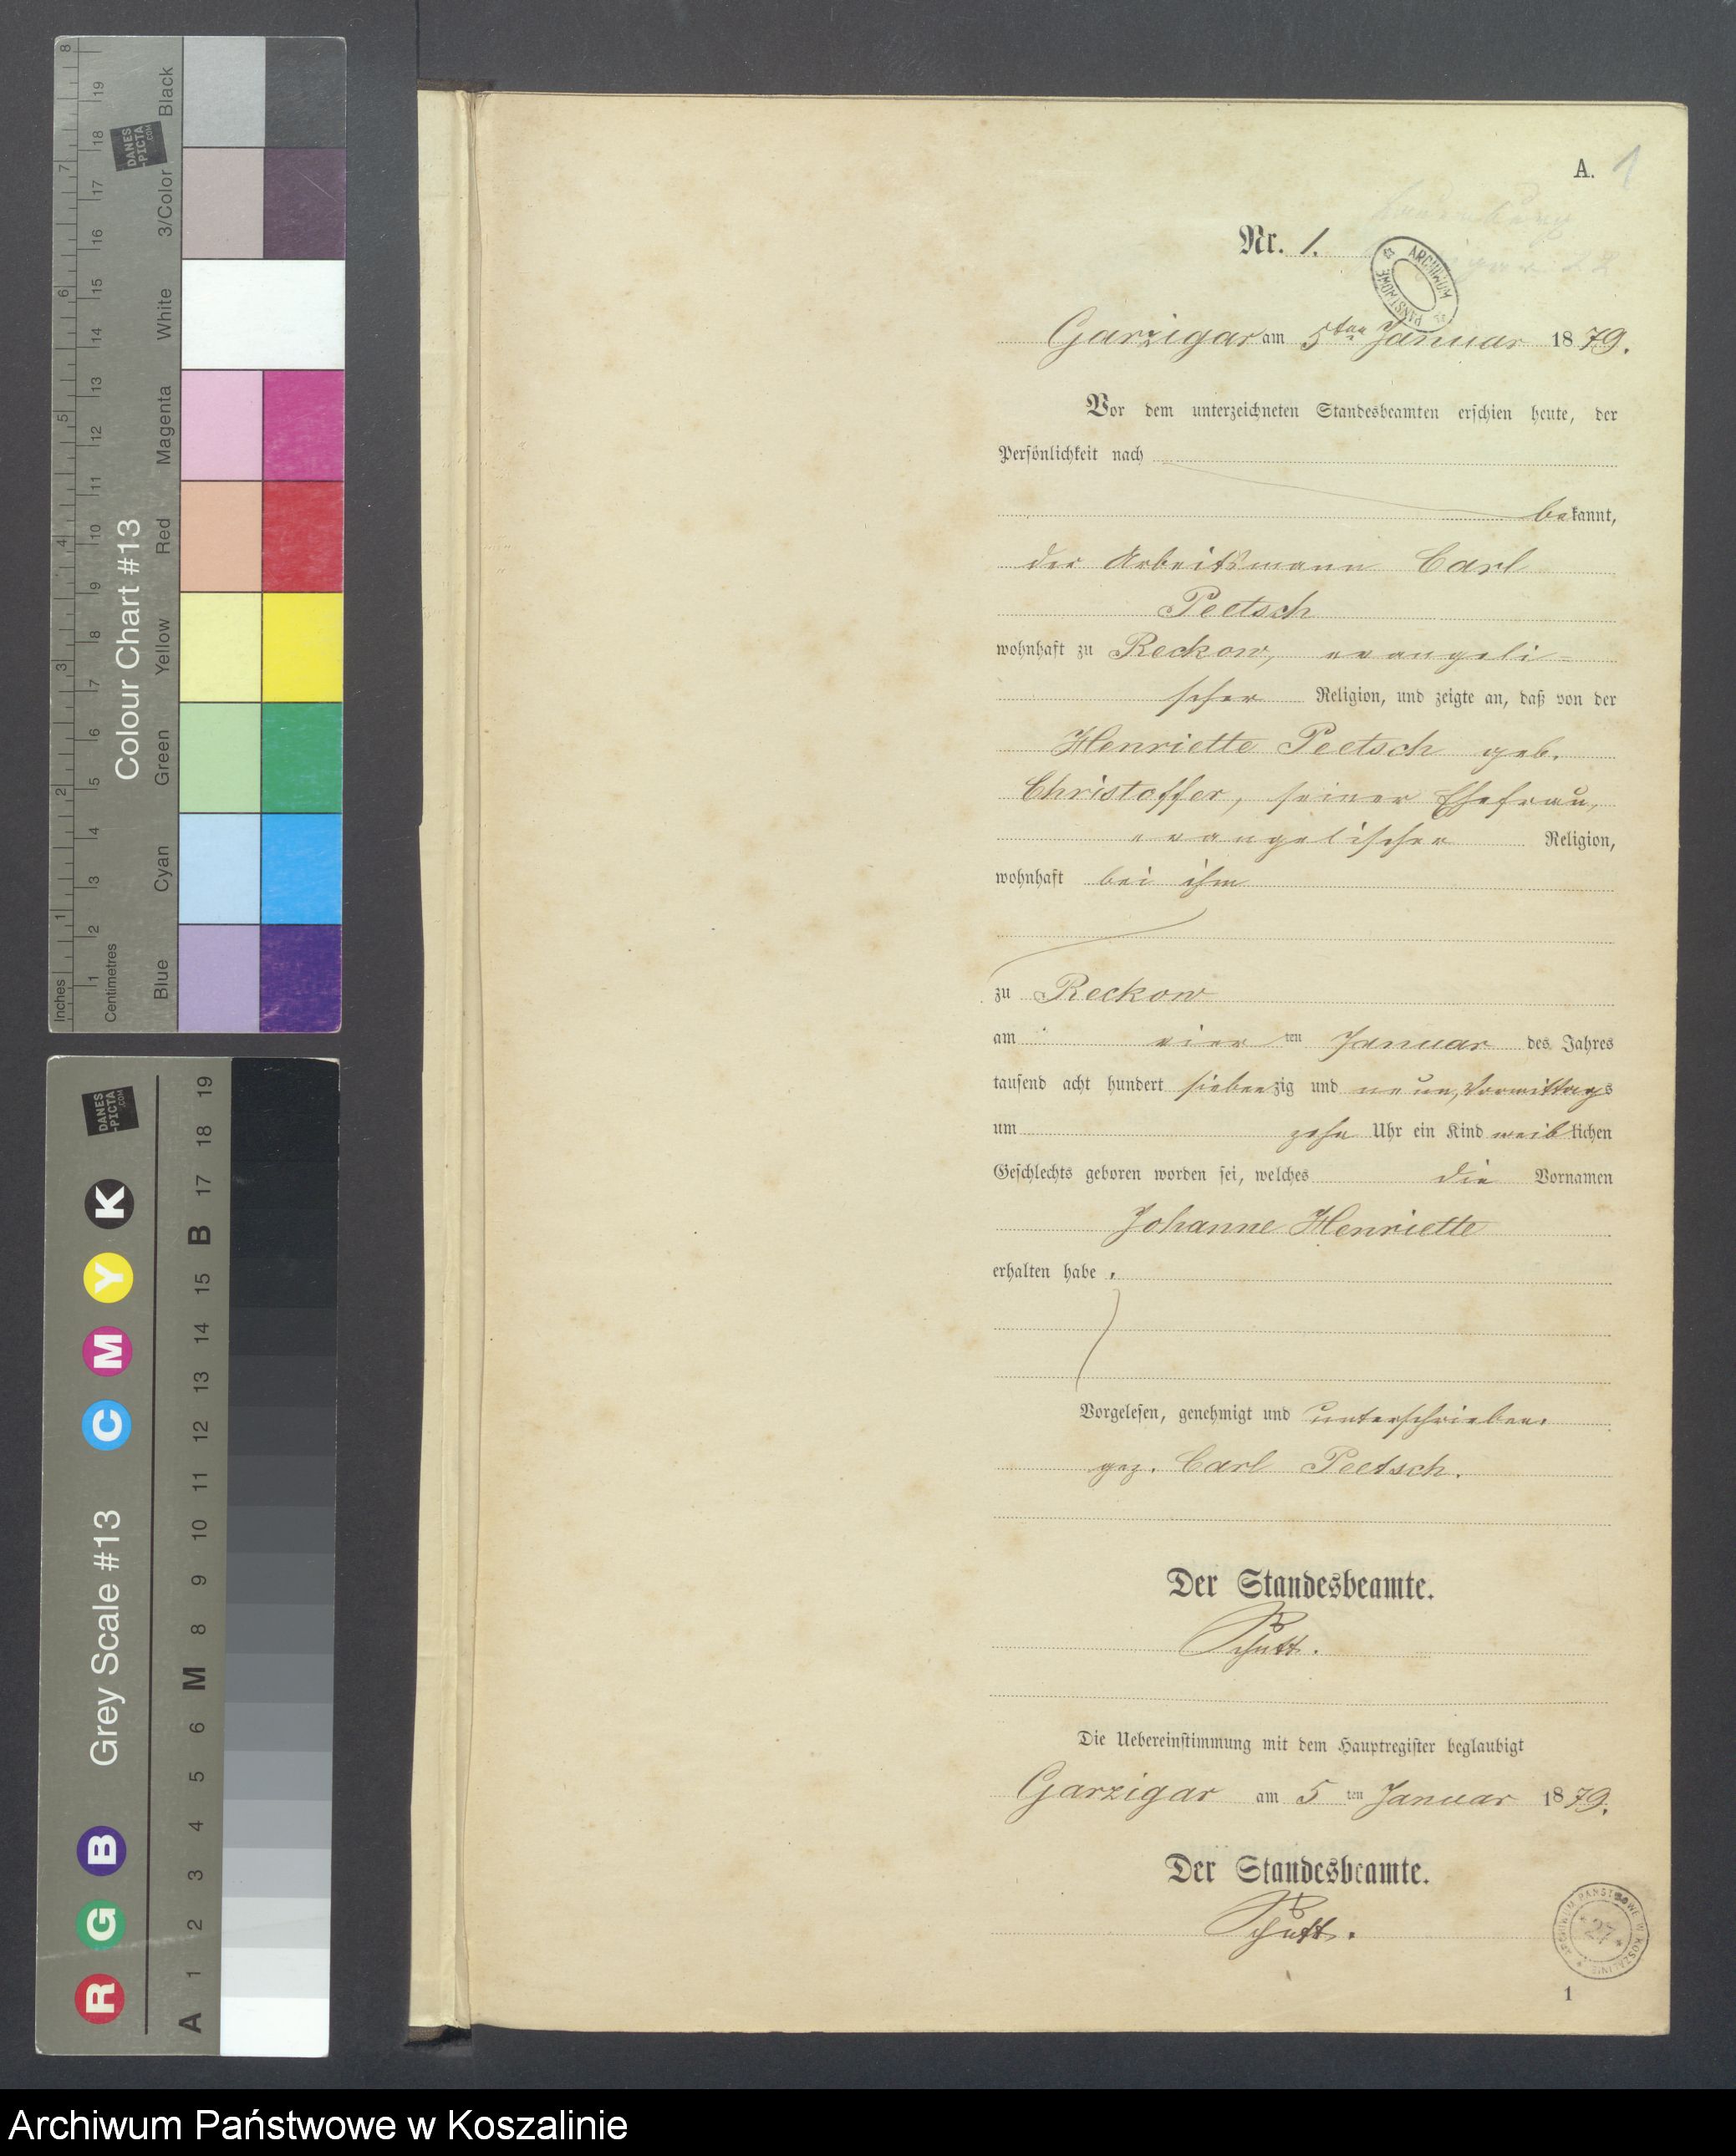 A. 1
Nr. 1.
ARCHIWUM PAŃSTWOWE
Garzigar am 5ten Januar 1879.
Vor dem unterzeichneten Standesbeamten erschien heute, der
Persönlichkeit nach
bekannt,
der Arbeitsmann Carl
Peetsch
wohnhaft zu Reckow, evangeli-
scher Religion, und zeigte an, daß von der
Henriette Peetsch geb.
Christoffer, seiner Ehefrau,
evangelischer Religion,
wohnhaft bei ihm
zu Reckow
am vierten Januar des Jahres
tausend acht hundert siebenzig und neun, Vormittags
um zehn Uhr ein Kind weiblichen
Geschlechts geboren worden sei, welches die Vornamen
Johanne Henriette
erhalten habe.
Vorgelesen, genehmigt und unterschrieben.
gez. Carl Peetsch.
Der Standesbeamte.
Die Uebereinstimmung mit dem Hauptregister beglaubigt
Garzigar am 5ten Januar 1879.
Der Standesbeamte.
ARCHIWUM PAŃSTWOWE W KOSZALINIE
27
1
Colour Chart #13
DANES-PICTA.COM
Inches 1 2 3 4 5 6 7 8
Centimetres 1 2 3 4 5 6 7 8 9 10 11 12 13 14 15 16 17 18 19
Blue Cyan Green Yellow Red Magenta White 3/Color Black
Grey Scale #13
DANES-PICTA.COM
R G B C M Y K
A 1 2 3 4 5 6 M 8 9 10 11 12 13 14 15 B 17 18 19
Archiwum Państwowe w Koszalinie